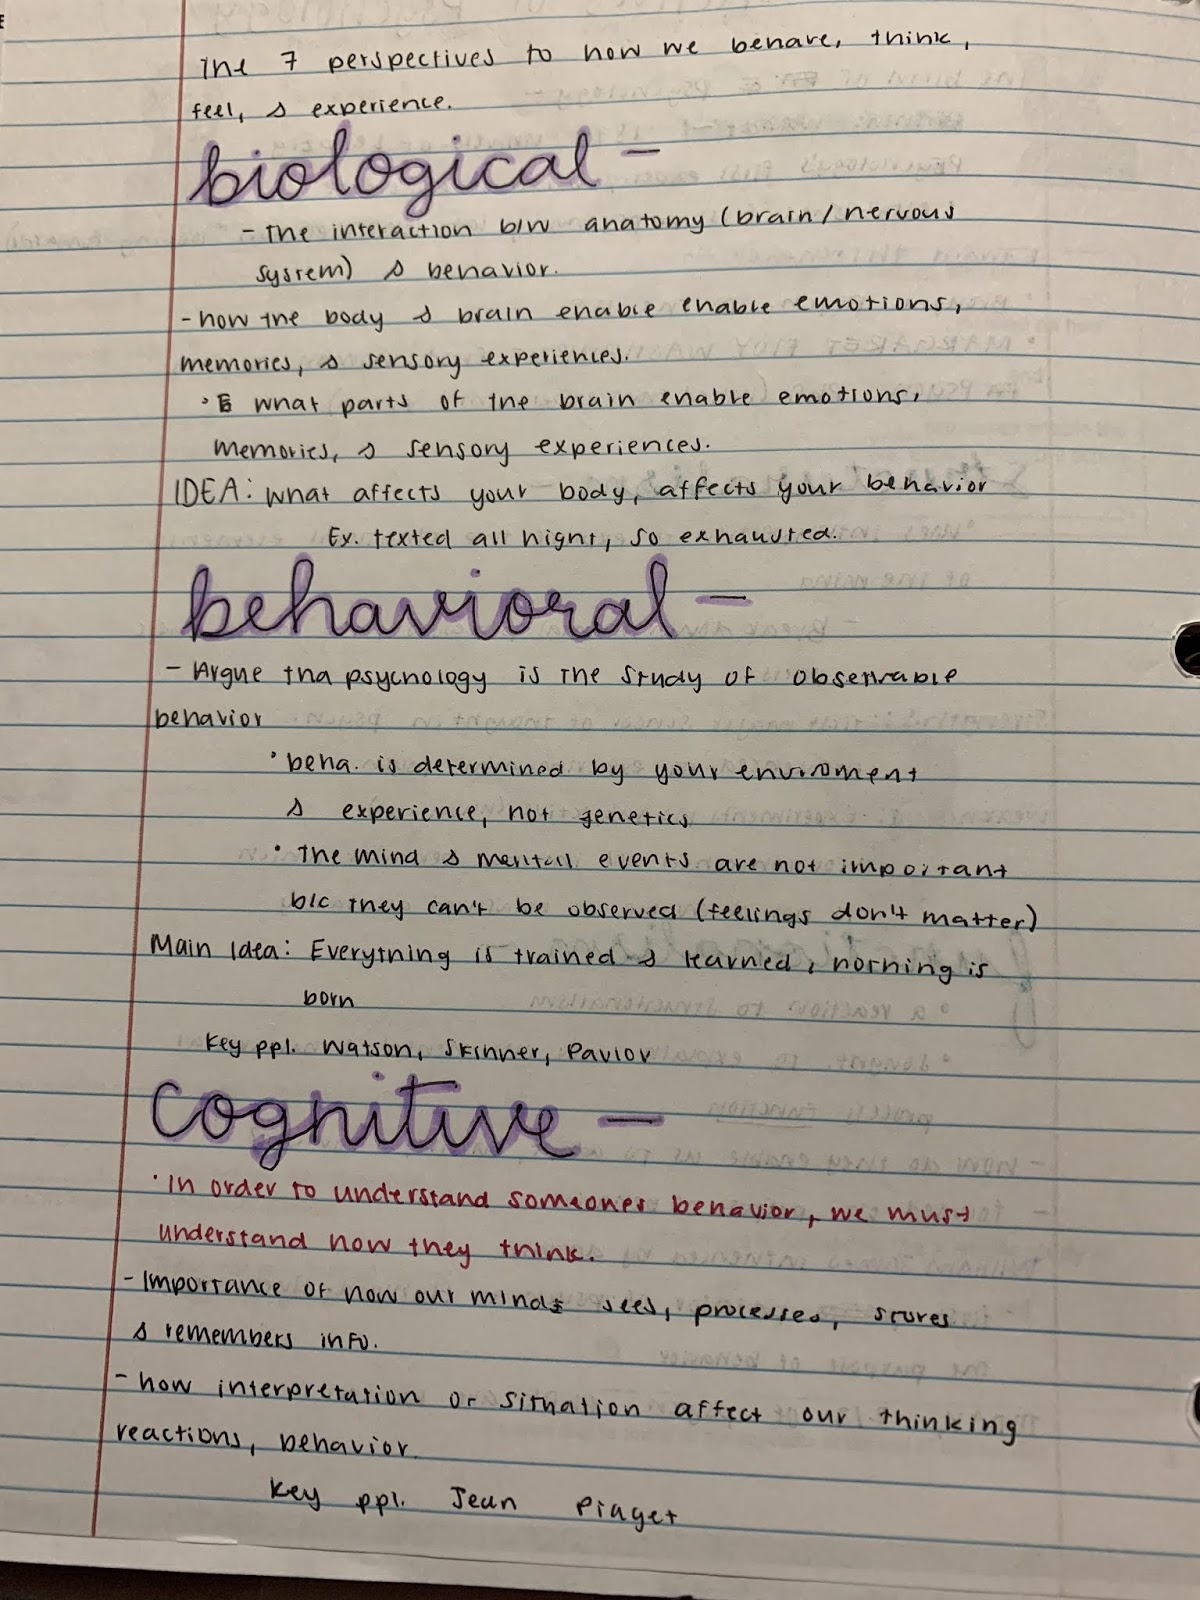 The 7 perspectives to how we behave, think,
feel, & experience.
biological -
- The interaction b/w anatomy (brain/nervous
system) & behavior.
- how the body & brain enable enable emotions,
memories, & sensory experiences.
• what parts of the brain enable emotions,
memories, & sensory experiences.
IDEA: what affects your body, affects your behavior
Ex. texted all night, so exhausted.
behavioral -
- Argue tha psychology is the study of observable
behavior
• beha. is determined by your enviroment
& experience, not genetics
• The mind & mental events are not important
b/c they can't be observed (feelings don't matter)
Main Idea: Everything is trained & learned, nothing is
born
Key ppl. Watson, Skinner, Pavlov
cognitive -
• In order to understand someones behavior, we must
understand how they think.
- Importance of how our minds sees, processes, stores
& remembers info.
- how interpretation or situation affect our thinking
reactions, behavior.
Key ppl. Jean Piaget